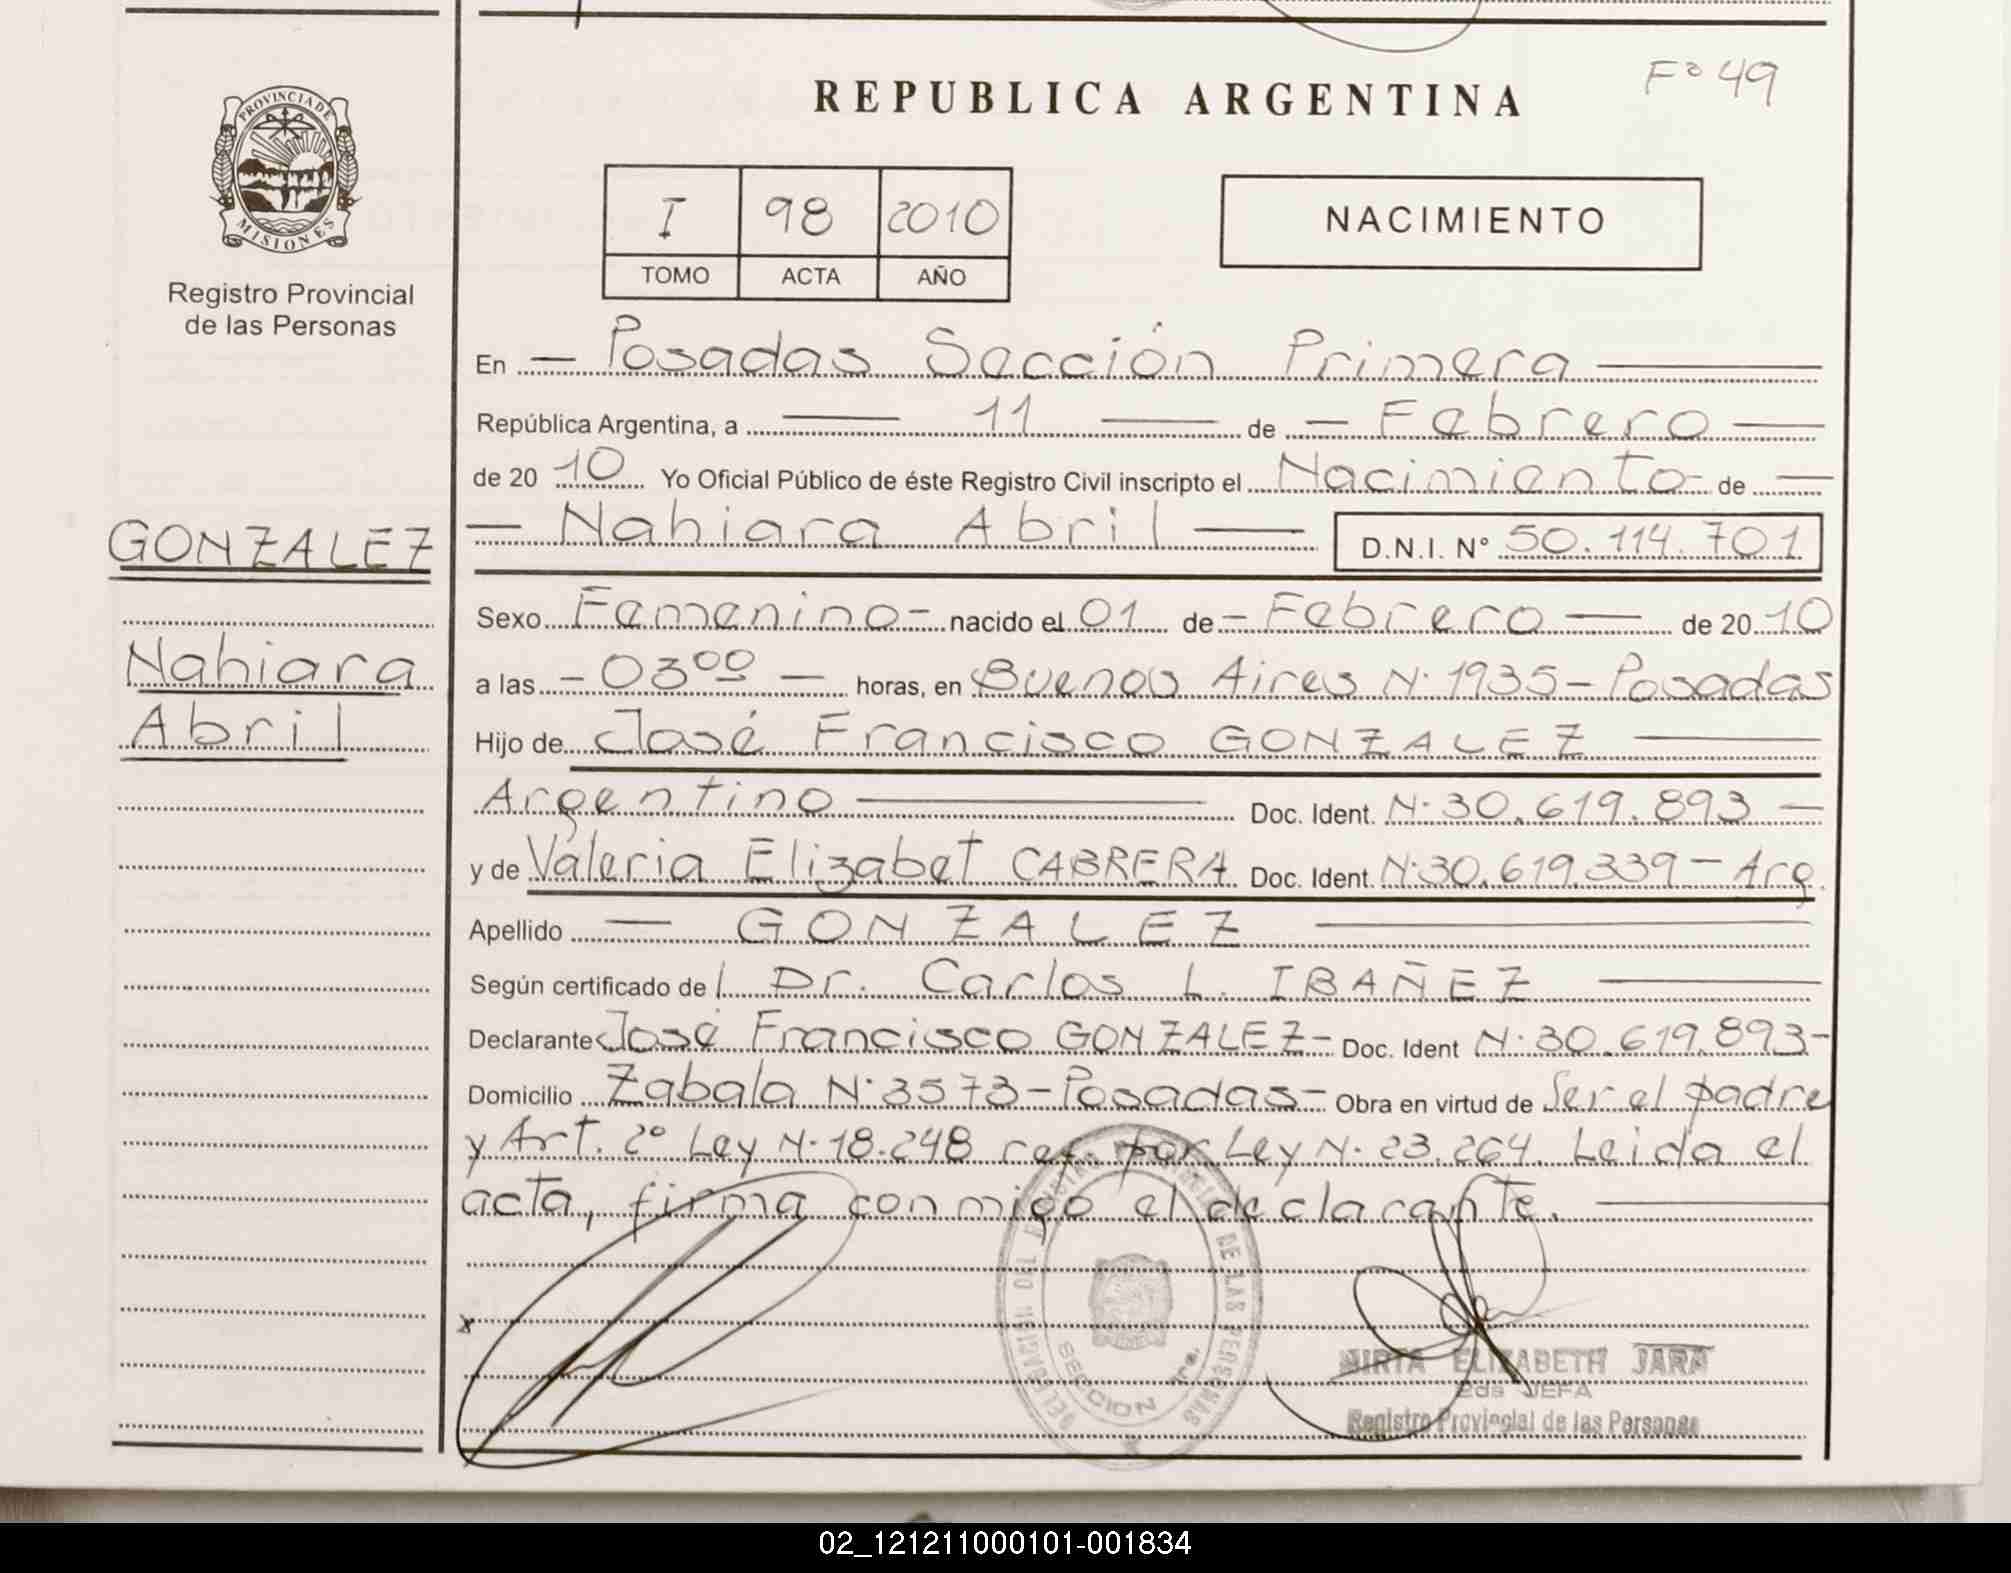 REPUBLICA ARGENTINA
Fº 49
PROVINCIA DE
MISIONES
Registro Provincial
de las Personas
I 98 2010
TOMO ACTA AÑO
NACIMIENTO
En — Posadas Sección Primera —
República Argentina, a — 11 — de — Febrero —
de 20 10 Yo Oficial Público de éste Registro Civil inscripto el Nacimiento - de —
— Nahiara Abril — D.N.I. Nº 50.114.701
GONZALEZ
Nahiara
Abril
Sexo Femenino - nacido el 01 de - Febrero — de 20 10
a las - 03⁰⁰ — horas, en Buenos Aires N· 1935 - Posadas
Hijo de José Francisco GONZALEZ —
Argentino — Doc. Ident. N· 30.619.893 —
y de Valeria Elizabet CABRERA Doc. Ident. N· 30.619.339 - Arg.
Apellido — GONZALEZ —
Según certificado de l Dr. Carlos L. IBAÑEZ —
Declarante José Francisco GONZALEZ - Doc. Ident N· 30.619.893 -
Domicilio Zabala N· 3573 - Posadas - Obra en virtud de Ser el padre
y Art. 2º Ley N· 18.248 ref por Ley N· 23.264. Leida el
acta, firma conmigo el declarante. —
x
DE LAS PERSONAS
SECCION 1ra.
MIRTA ELIZABETH JARA
2da JEFA
Registro Provincial de las Personas
02_121211000101-001834